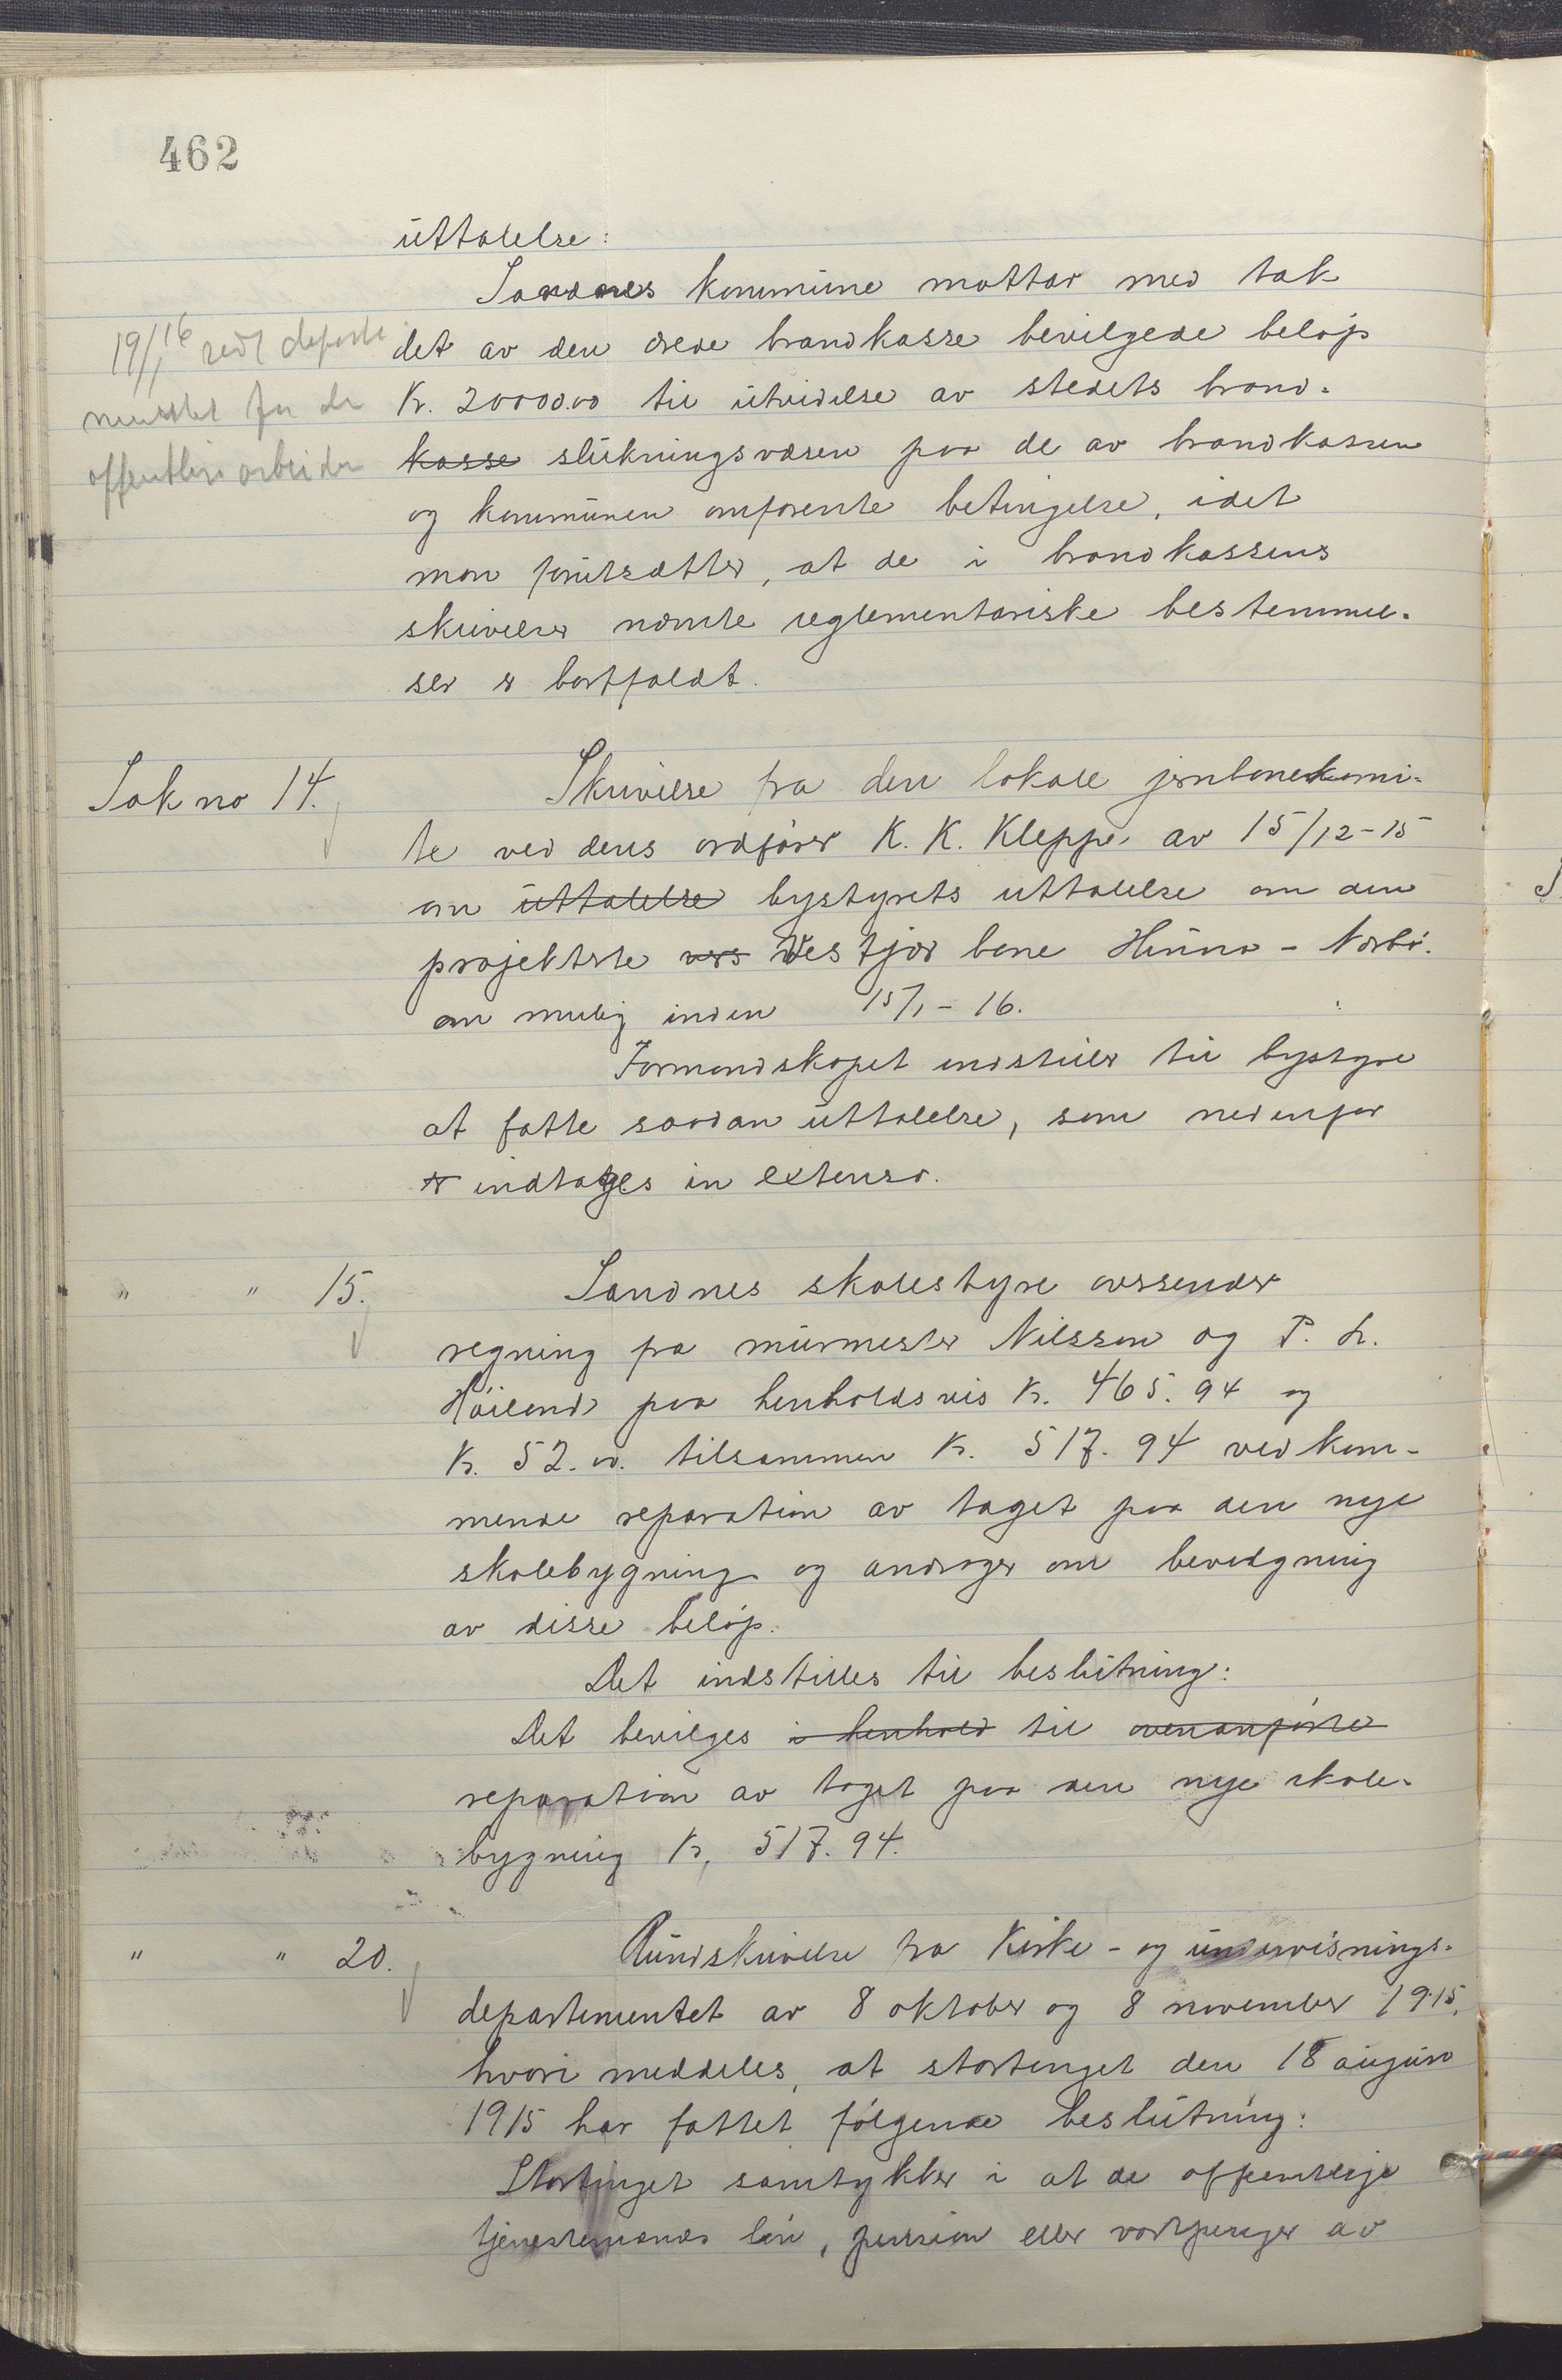 462
uttalelse:
Sandnes kommune mottar med tak
19/1 16
det av den brandkasse bevilgede beløp
Kr. 20000.00 til utvidelse av stedets brand-
offentlige arbeider
kasse slukningsvæsen paa de av brandkassen
og kommunen omforente betingelse, idet
man forutsætter, at de i brandkassens
skrivelser nævnte reglementariske bestemmel-
ser er bortfaldt.
Sak no 14.
Skrivelse fra den lokale jernbanekomi-
te ved dens ordfører K. K. Kleppe, av 15/12-15
om uttalelse bystyrets uttalelse om den
projekterte Vestjær bane Hinna - Nærbø.
om mulig inden 15/1-16.
Formandskapet indstiller til bystyre
at fatte saadan uttalelse, som nedenfor
er indtages in extenso.
" " 15.
Sandnes skolestyre oversender
regning fra murmester Nilsson og P. L.
Høiland paa henholdsvis Kr. 465.94 og
Kr. 52.00. tilsammen Kr. 517.94 vedkom-
mende reparation av taget paa den nye
skolebygning og androger om bevilgning
av disse beløp.
Det indstilles til beslutning:
Det bevilges i henhold til ovenanførte
reparation av taget paa den nye skole-
bygning Kr. 517.94.
" " 20.
Rundskrivelse fra Kirke- og undervisnings-
departementet av 8 oktober og 8 november 1915,
hvori meddeles, at stortinget den 18 august
1915 har fattet følgende beslutning:
Stortinget samtykker i at de offentlige
tjenestemænds løn, pension eller vartpenger av